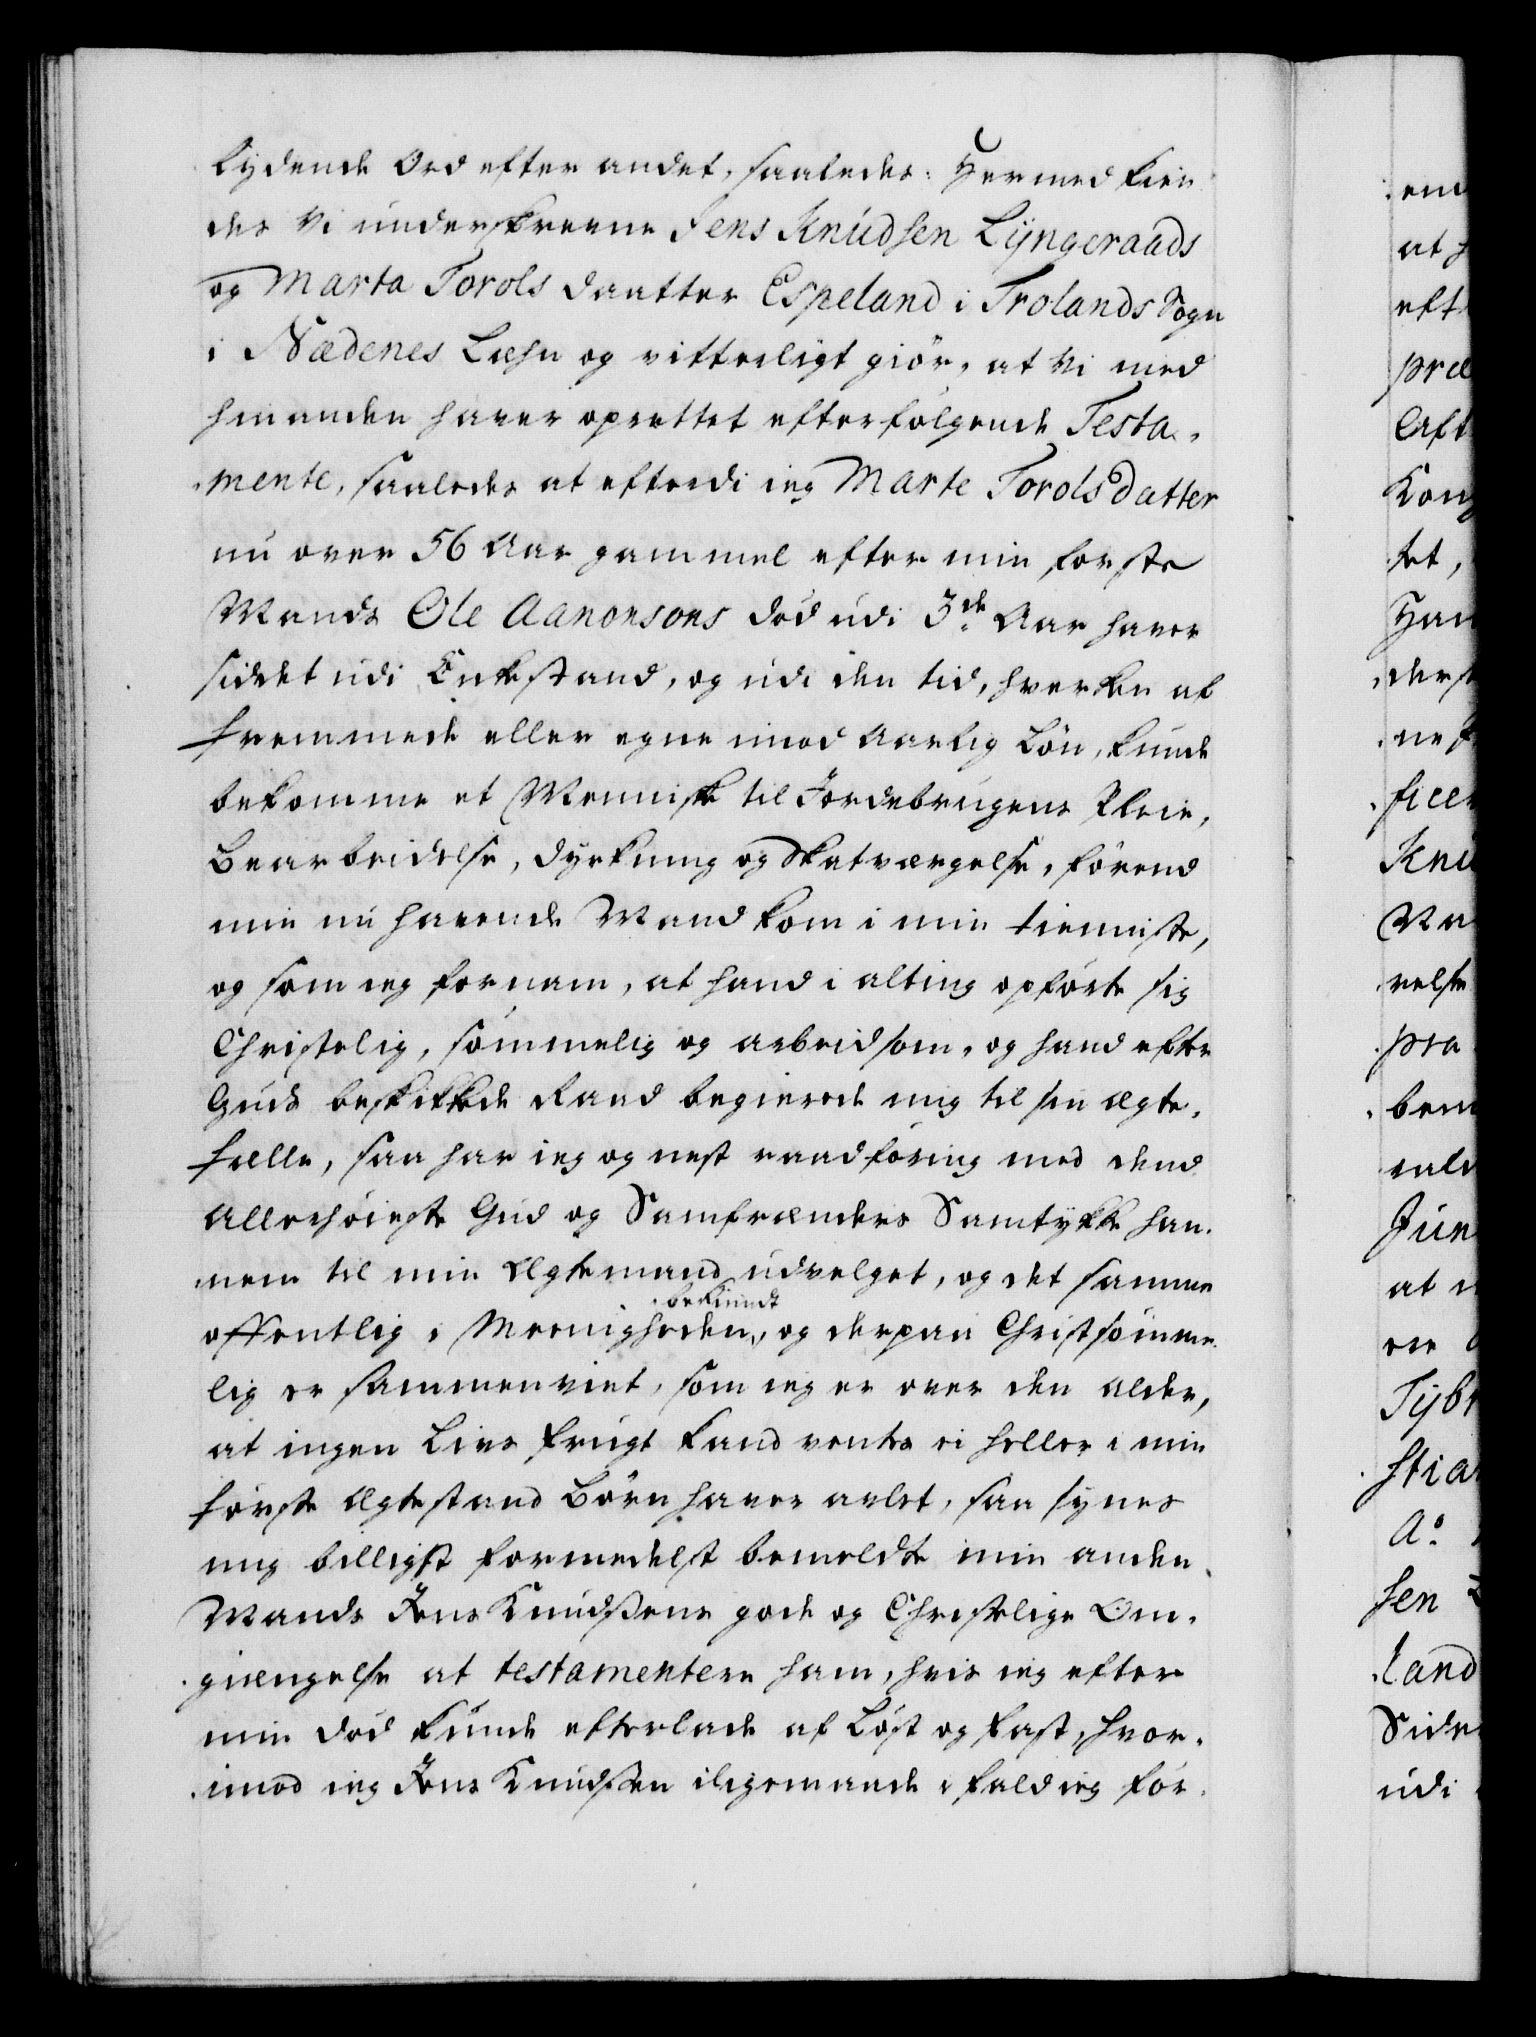 lydende Ord efter andet, saaledes: Hermed kien
des Vi underskrevne Jens Knudsen Lyngeraads
og Marta Torols daatter Espeland i Trolands Sogn
i Nædenes Læhn og vitterligt giör, at Vi med
hinanden haver oprettet efterfölgende Testa-
mente, saaledes at efterdi ieg Marte Torols datter
nu over 56 Aar gammel efter min förste
Mands Ole Aanonsons död udi 3de Aar haver
siddet udi Enkestand, og udi den tid, hverken af
fremmede eller egne imod Aarlig Lön, kunde
bekomme et Menniske til Jordebrugens Pleie,
Bearbeidelse, dyrkning og Skatværgelse, förend
min nu havende Mand kom i min tienniste,
og som ieg fornam, at hand i alting opförte sig
Christelig, sömmelig og arbeidsom, og hand efter
Guds beskikkede Raad begierede mig til sin Ægte-
fælle, saa har ieg og nest raadföring med dend
Allerhöieste Gud og Samfrænders Samtykke han-
nem til min Ægtemand udvelget, og det samme
bekiendt
offentlig i Meenigheden, og derpaa Christsömme-
lig er sammenviet, som ieg er over den alder,
at ingen Livs frugt kand ventes ei heller i min
förste Ægtestand Börn haver avlet, saa synes
mig billigst formedelst bemeldte min anden
Mands Jens Knudsens gode og Christelige Om-
giængelse at testamentere ham, hvis ieg efter
min död kunde efterlade af Löst og fast, hvor-
imod ieg Jens Knudsen iligemaade i fald ieg för